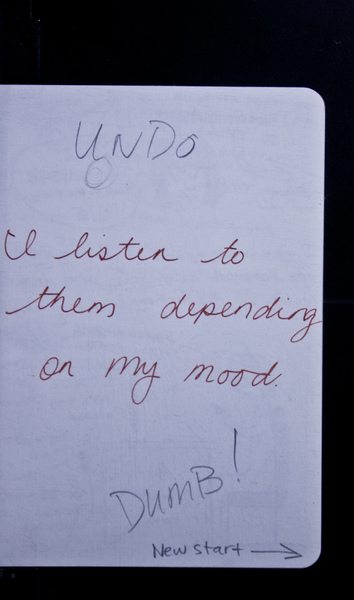 UNDO
I listen to
them depending
on my mood.
DUMB!
New start →